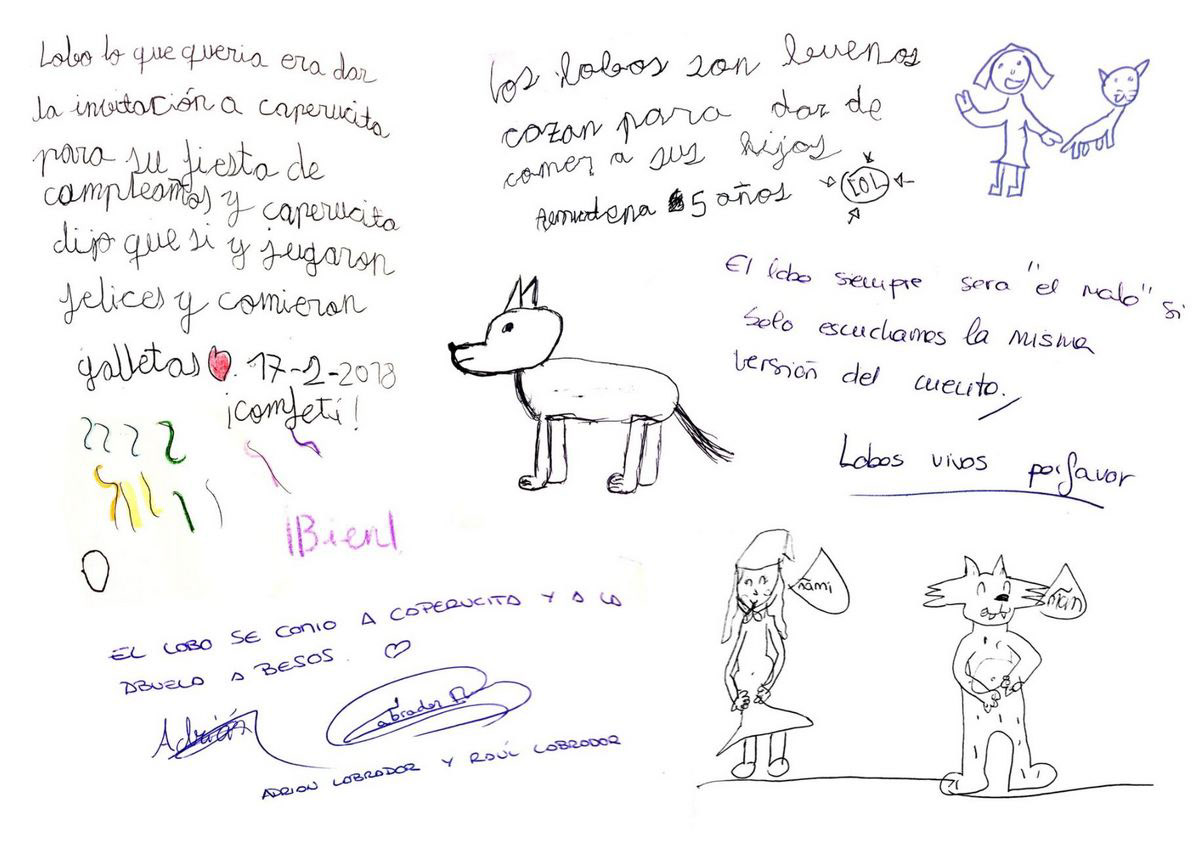 Lobo lo que queria era dar
la invitación a caperucita
para su fiesta de
cumpleaños y caperucita
dijo que si y jugaron
felices y comieron
galletas. 17-2-2018
¡confeti!
¡Bien!
Los lobos son buenos
cazan para dar de
comer a sus hijos
Almudena 5 años
El lobo siempre sera "el malo" si
solo escuchamos la misma
versión del cuento.
Lobos vivos por favor
ñami
ñam
EL LOBO SE COMIO A CAPERUCITA Y A LA
ABUELA A BESOS.
Adrián
Labrador R
ADRIAN LABRADOR Y RAÚL LABRADOR